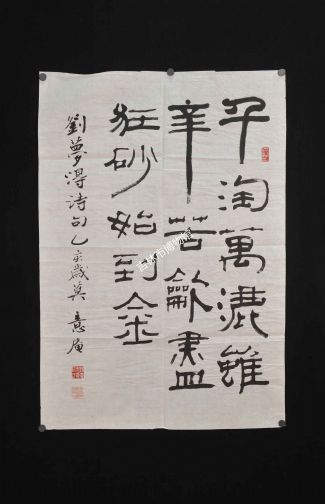 千淘萬漉雖
辛苦龡盡
狂砂始到金
劉夢得詩句乙亥歲莫 意庵